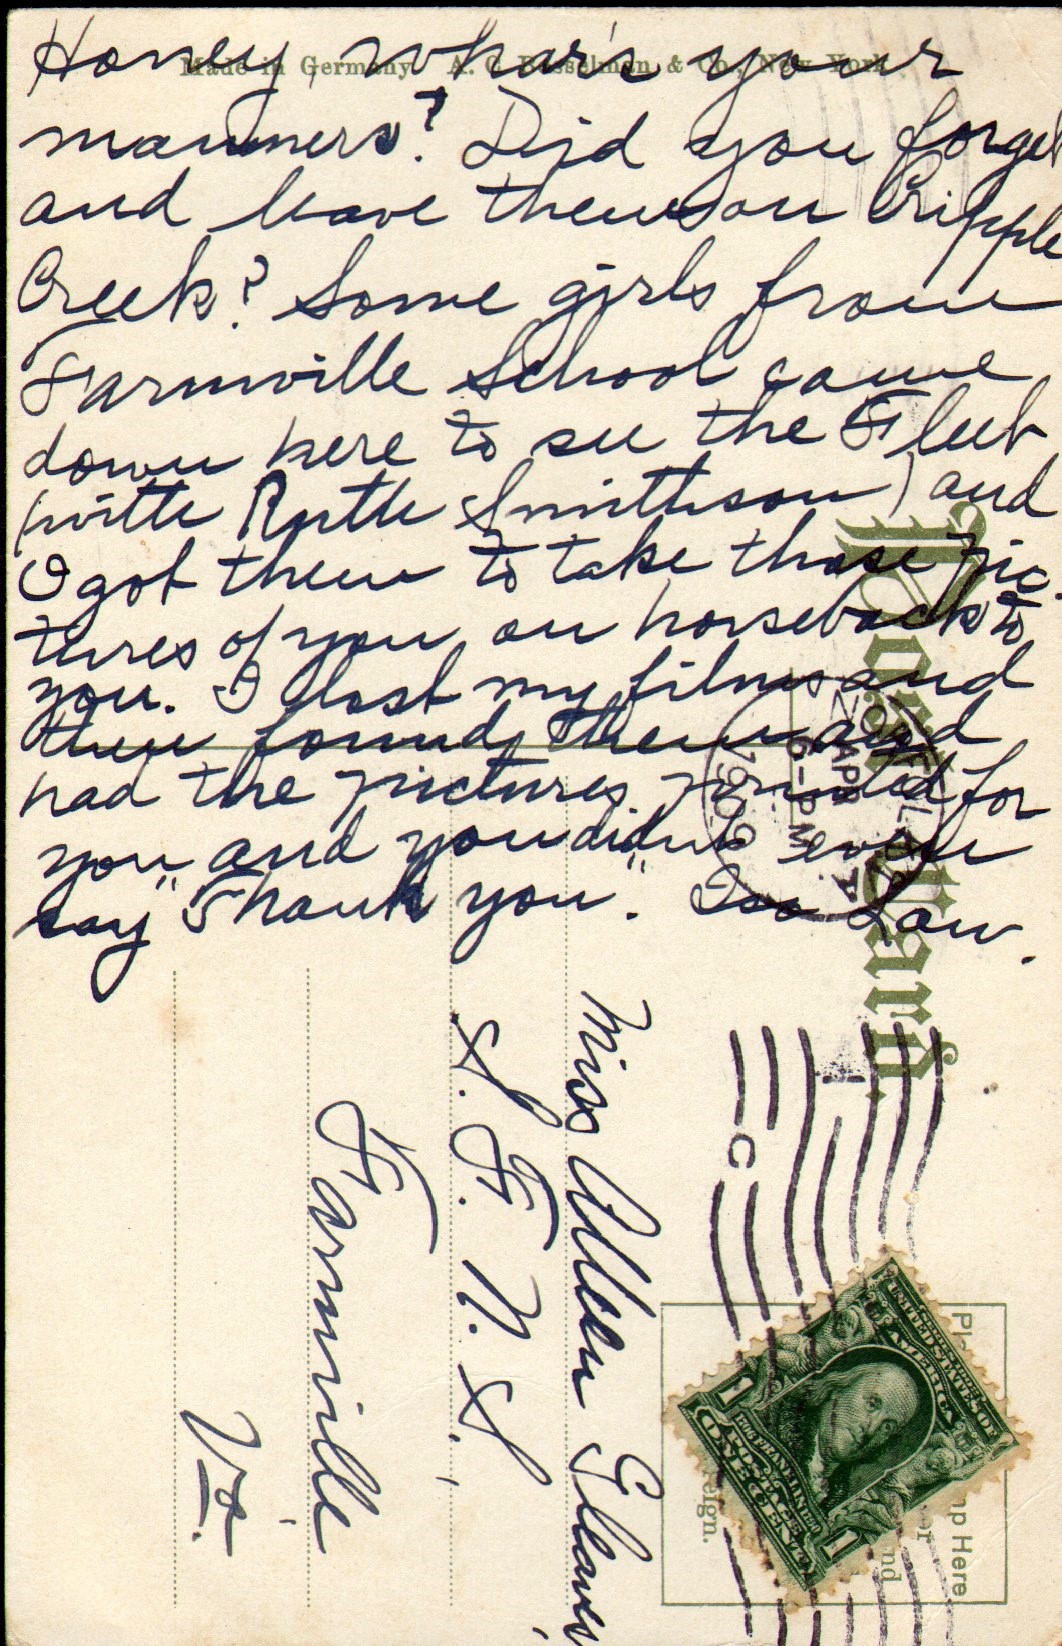 Made in Germany A. C. Bosselman & Co., New York
Honey, whar's your
manners? Did you forget
and leave them on Cripple
Creek? Some girls from
Farmville School came
down here to see the Fleet
(with Ruth Smithson) and
I got them to take those pic-
tures of you on horseback to
you. I lost my films and
then found them and
had the pictures printed for
you and you didn't even
say "Thank you". Too Low.
Post Card.
APR
6-PM
1909
Miss
S. F. N. S.
Farmville
Va.
C
Here
UNITED STATES OF AMERICA
POSTAGE
ONE CENT
1 1